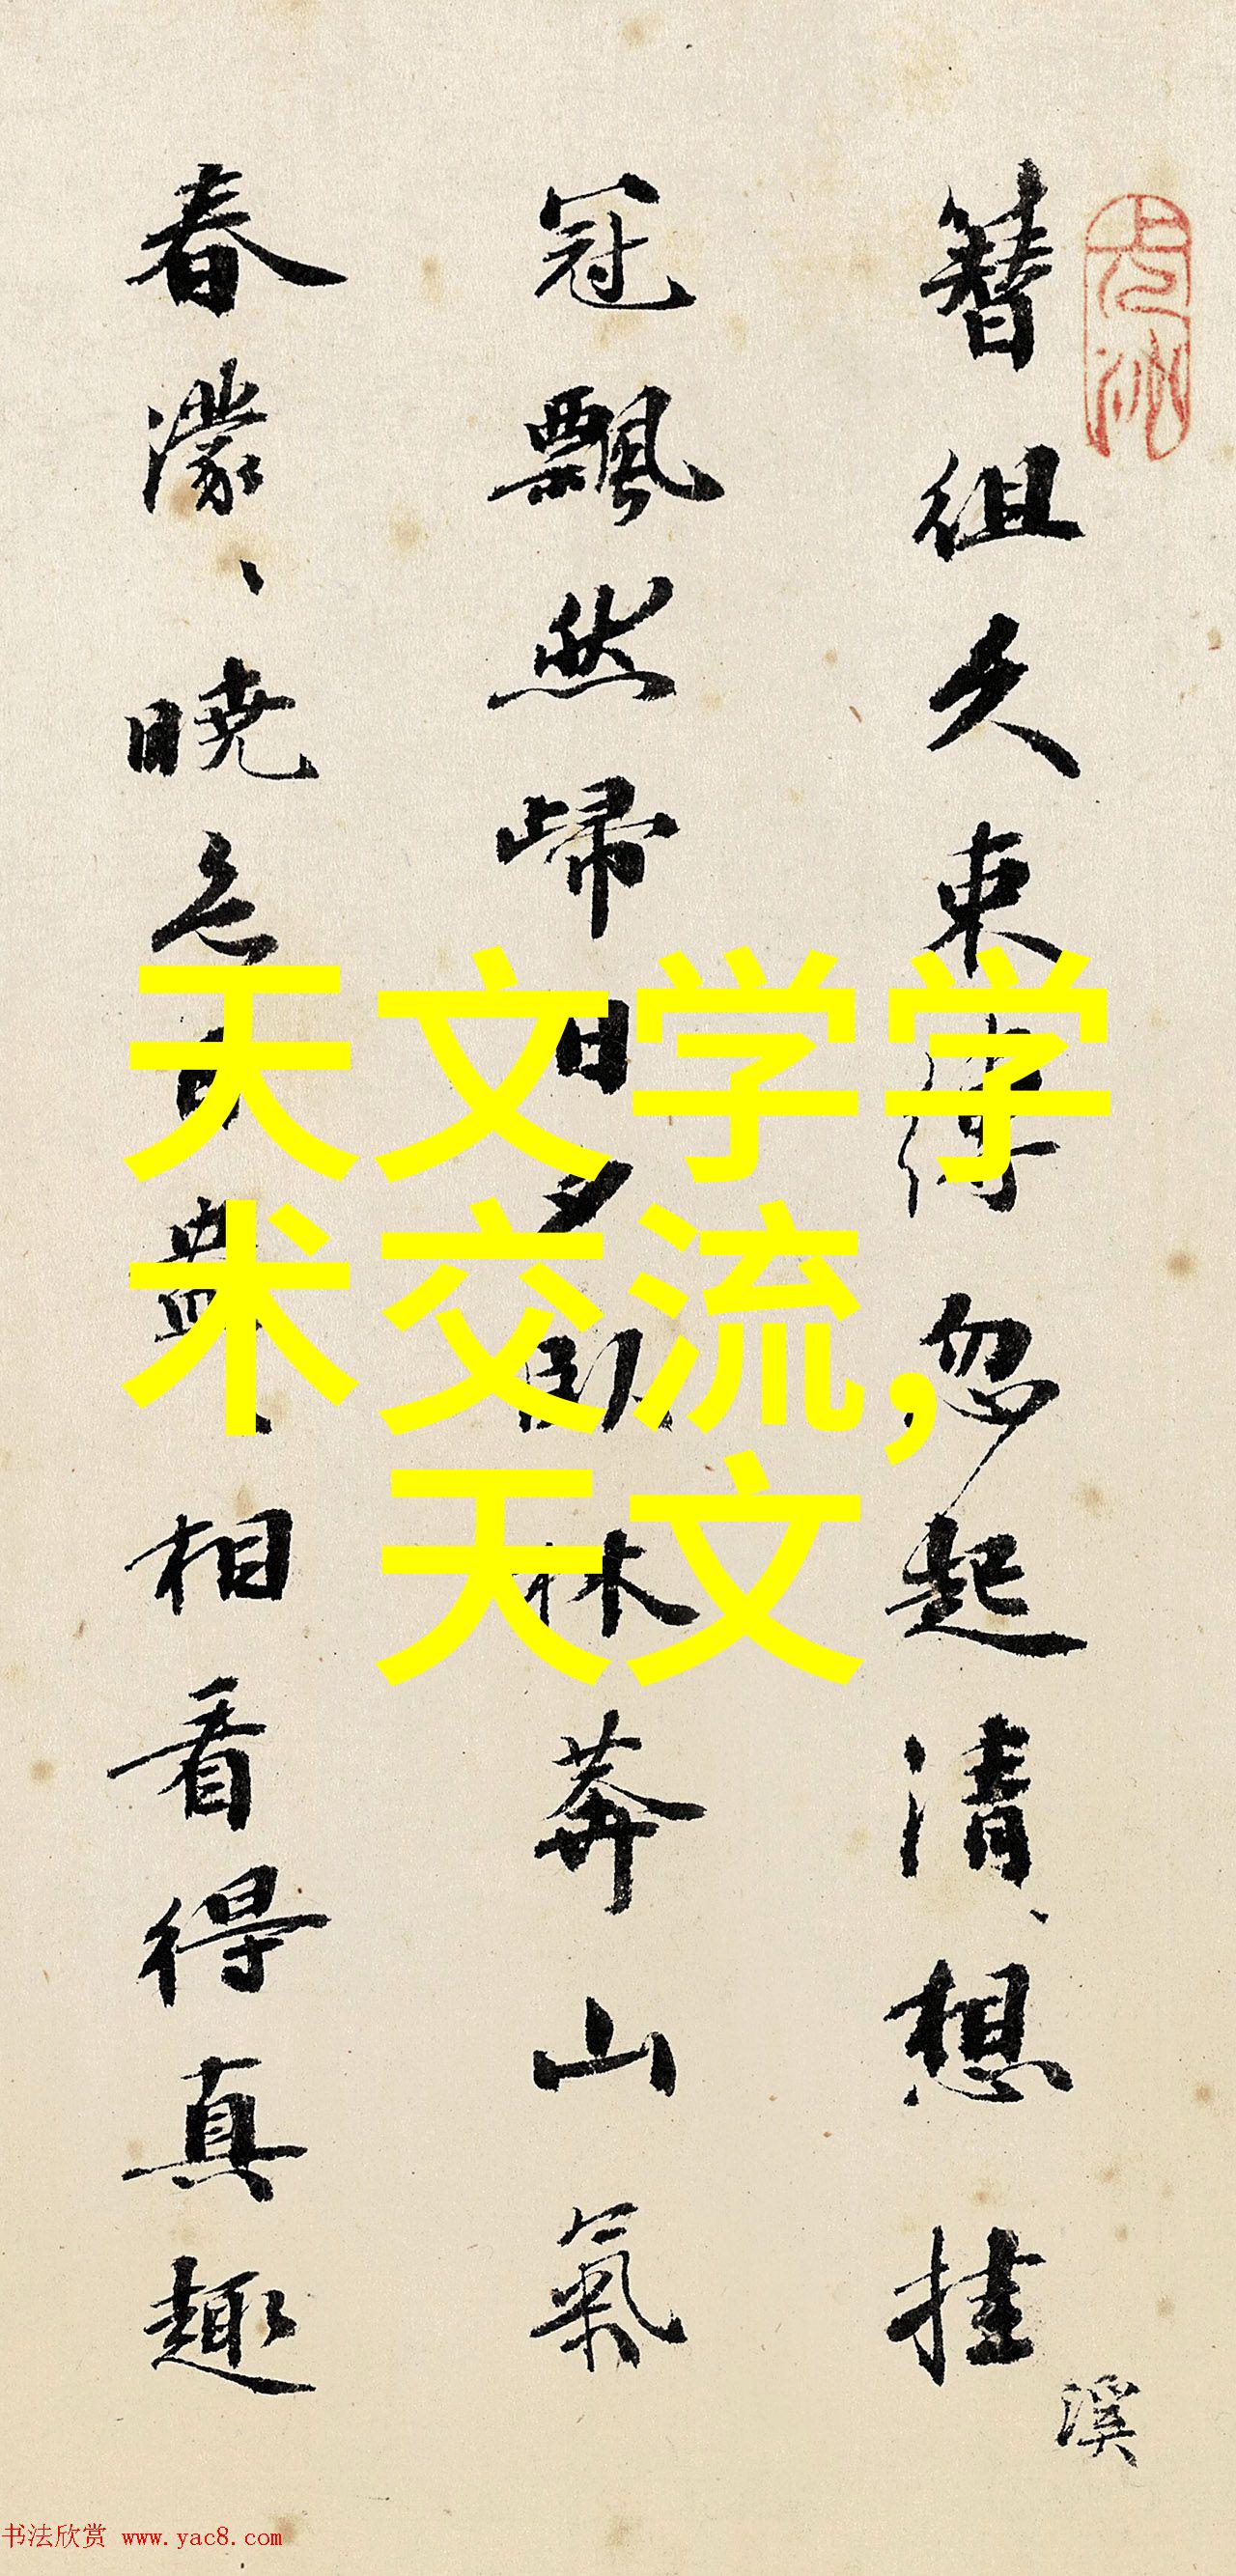 簪组久束缚忽起清、想挂
溪
冠飘然歸日夕卧林莽山氣
春濛、晓色相看得真趣
天文学学
术交流,
天文
书法欣赏 www.yac8.com